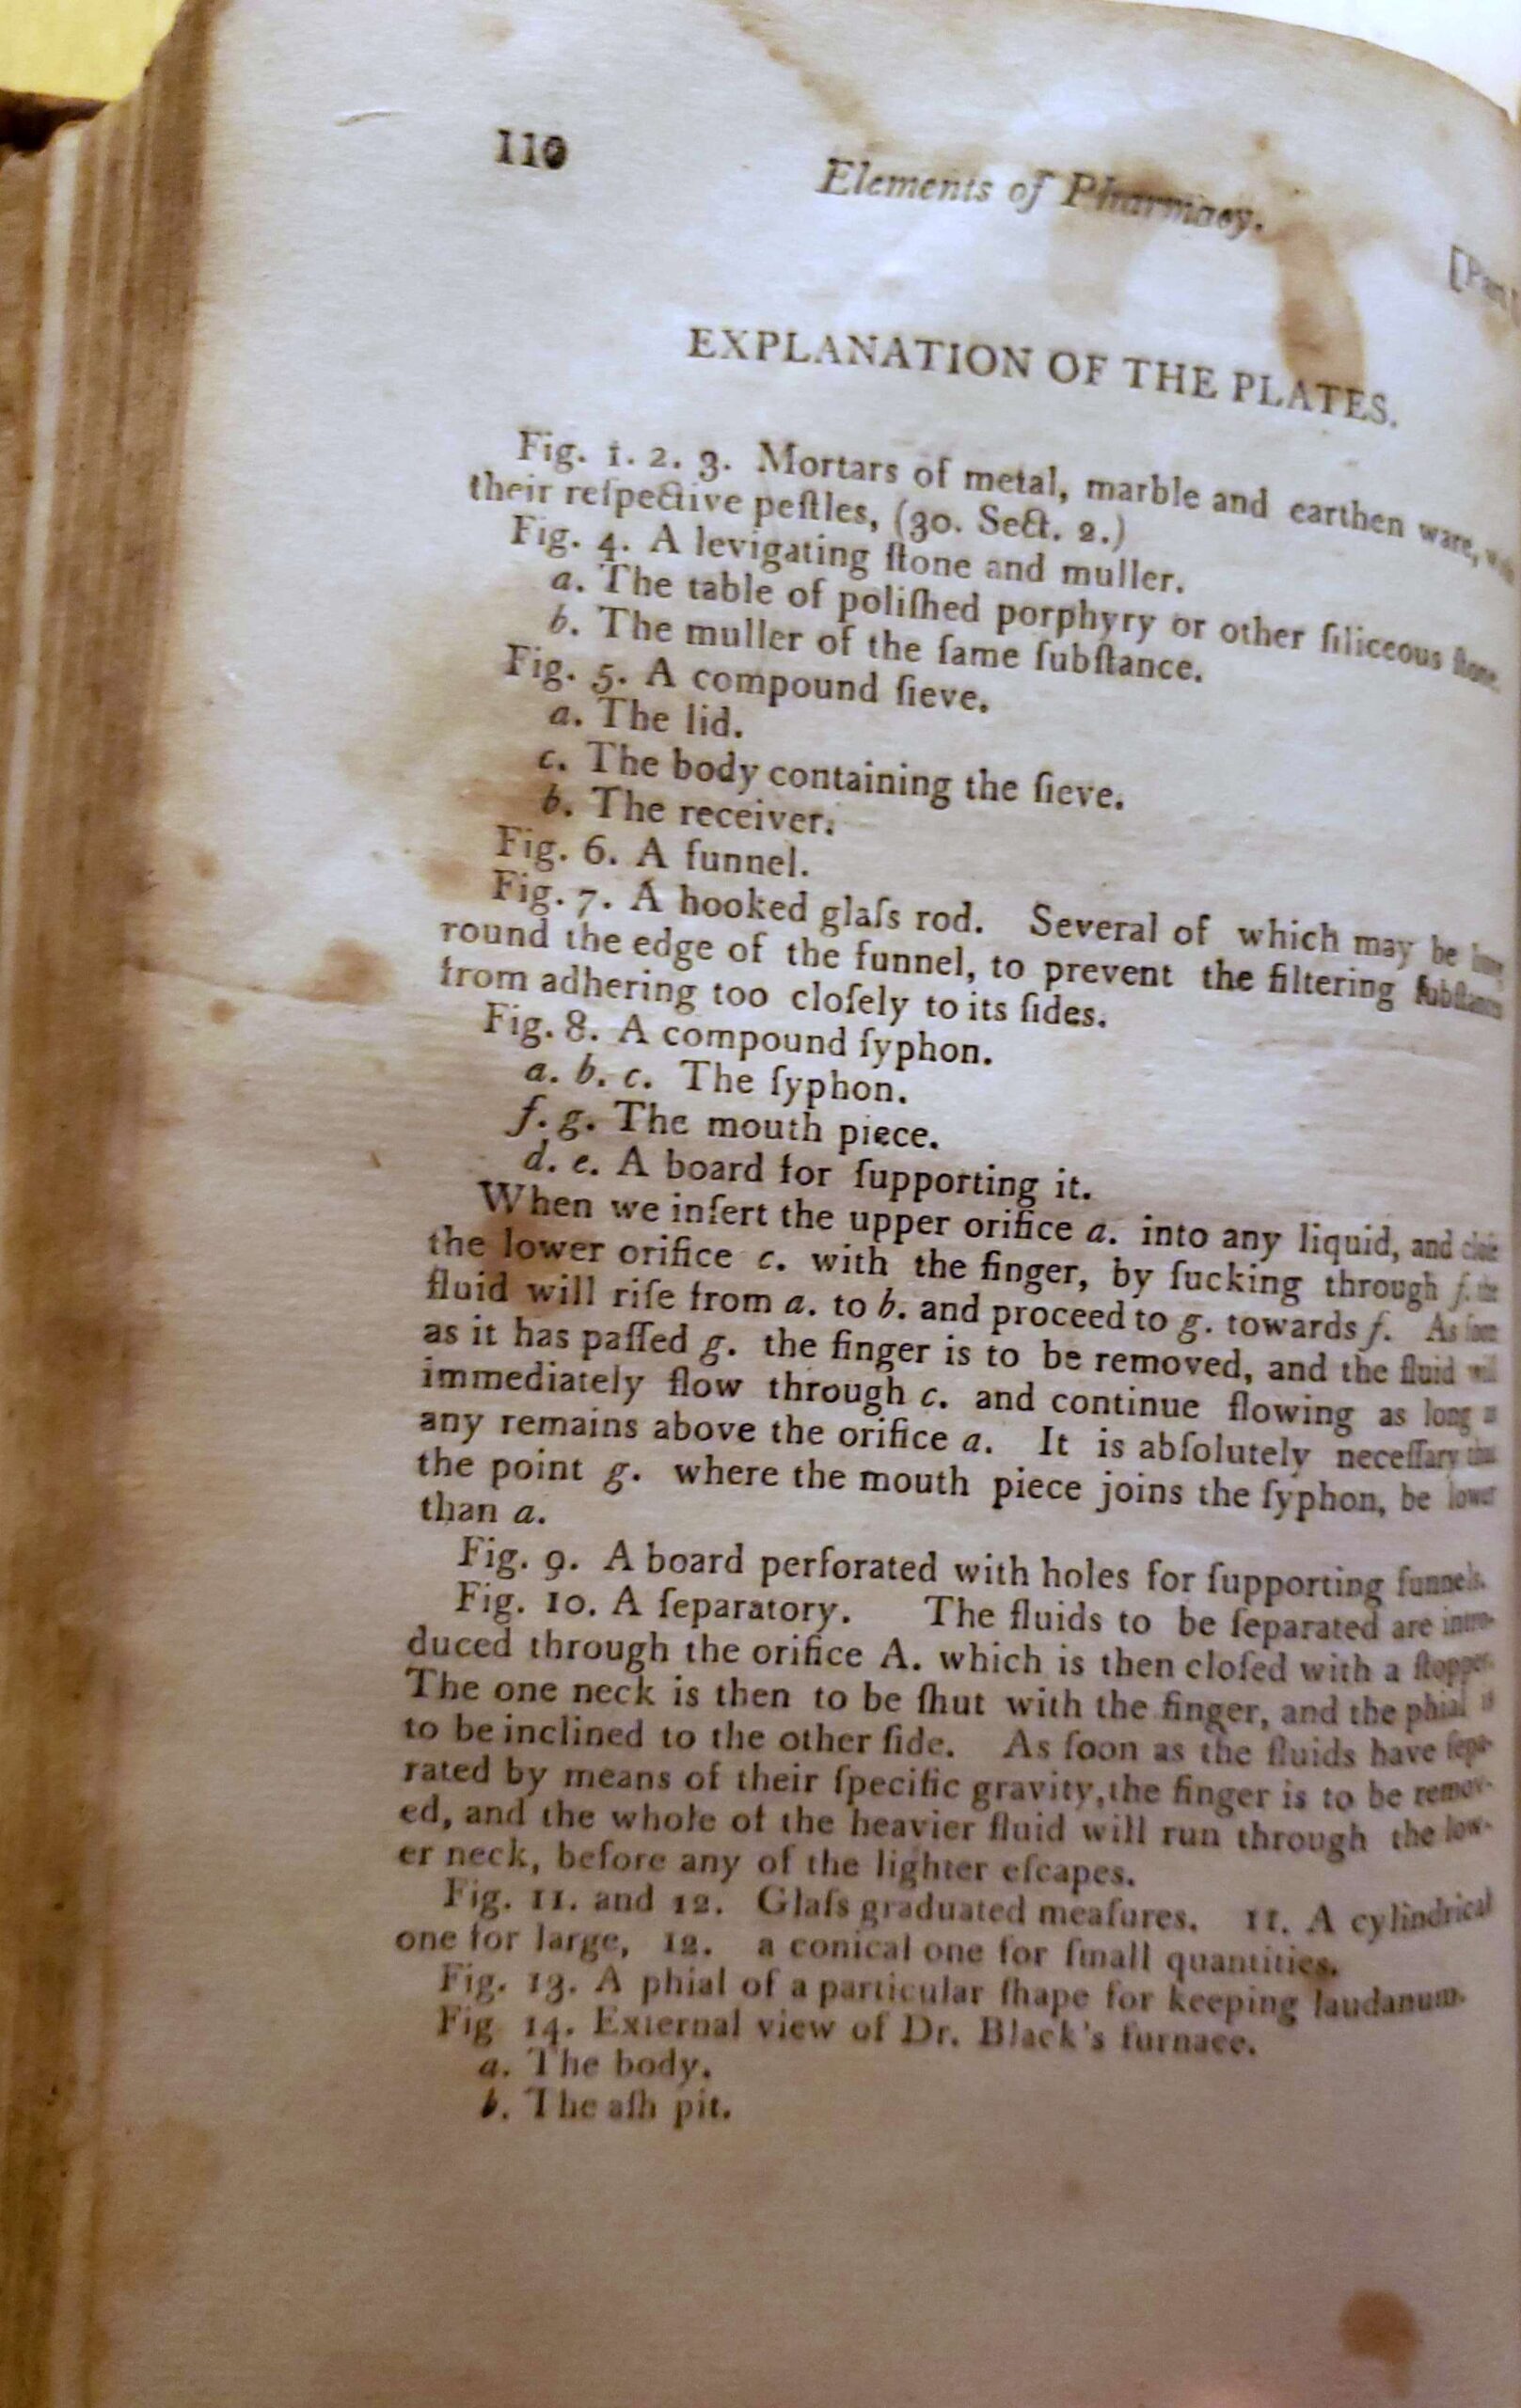 110
Elements of Pharmacy.
[Part
EXPLANATION OF THE PLATES.
Fig. 1. 2. 3. Mortars of metal, marble and earthen ware, with
their reſpective peſtles, (30. Sect. 2.)
Fig. 4. A levigating ſtone and muller.
a. The table of poliſhed porphyry or other ſiliceous ſtone.
b. The muller of the ſame ſubſtance.
Fig. 5. A compound ſieve.
a. The lid.
c. The body containing the ſieve.
b. The receiver.
Fig. 6. A funnel.
Fig. 7. A hooked glaſs rod. Several of which may be hung
round the edge of the funnel, to prevent the filtering ſubſtance
from adhering too cloſely to its ſides.
Fig. 8. A compound ſyphon.
a. b. c. The ſyphon.
f. g. The mouth piece.
d. e. A board for ſupporting it.
When we inſert the upper orifice a. into any liquid, and cloſe
the lower orifice c. with the finger, by ſucking through f. the
fluid will riſe from a. to b. and proceed to g. towards f. As ſoon
as it has paſſed g. the finger is to be removed, and the fluid will
immediately flow through c. and continue flowing as long as
any remains above the orifice a. It is abſolutely neceſſary that
the point g. where the mouth piece joins the ſyphon, be lower
than a.
Fig. 9. A board perforated with holes for ſupporting funnels.
Fig. 10. A ſeparatory. The fluids to be ſeparated are intro-
duced through the orifice A. which is then cloſed with a ſtopper.
The one neck is then to be ſhut with the finger, and the phial is
to be inclined to the other ſide. As ſoon as the fluids have ſepa-
rated by means of their ſpecific gravity, the finger is to be remov-
ed, and the whole of the heavier fluid will run through the low-
er neck, before any of the lighter eſcapes.
Fig. 11. and 12. Glaſs graduated meaſures. 11. A cylindrical
one for large, 12. a conical one for ſmall quantities.
Fig. 13. A phial of a particular ſhape for keeping laudanum.
Fig 14. External view of Dr. Black's furnace.
a. The body.
b. The aſh pit.